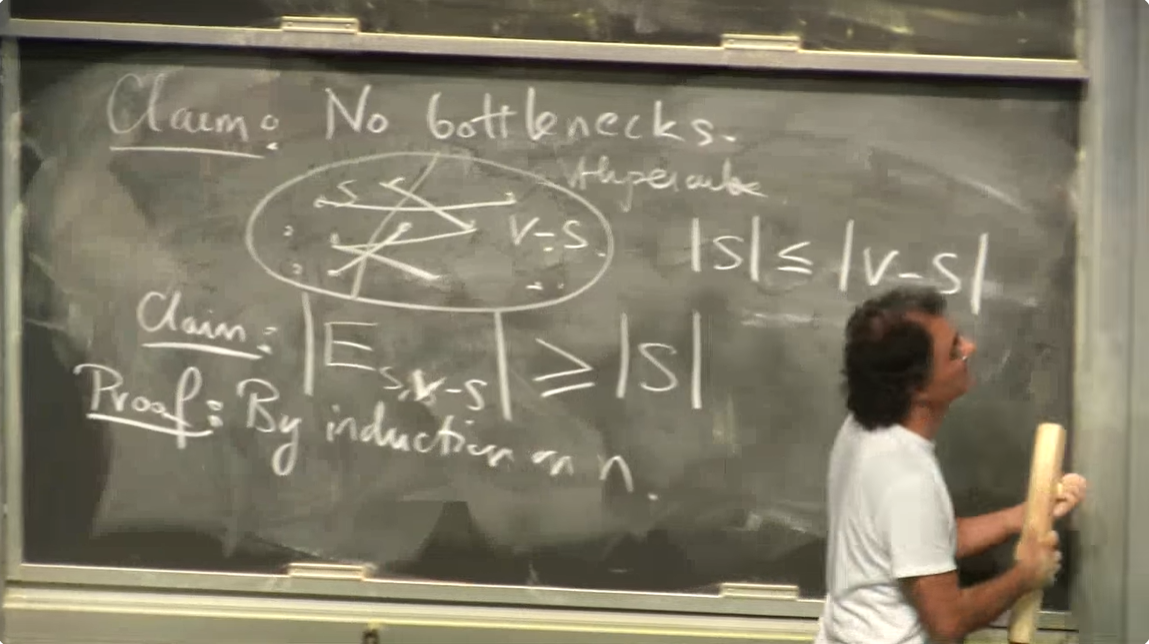 Claim: No bottlenecks.
Hypercube
S V-S
|S| ≤ |V-S|
Claim: |E_{S,V-S}| ≥ |S|
Proof: By induction on n.